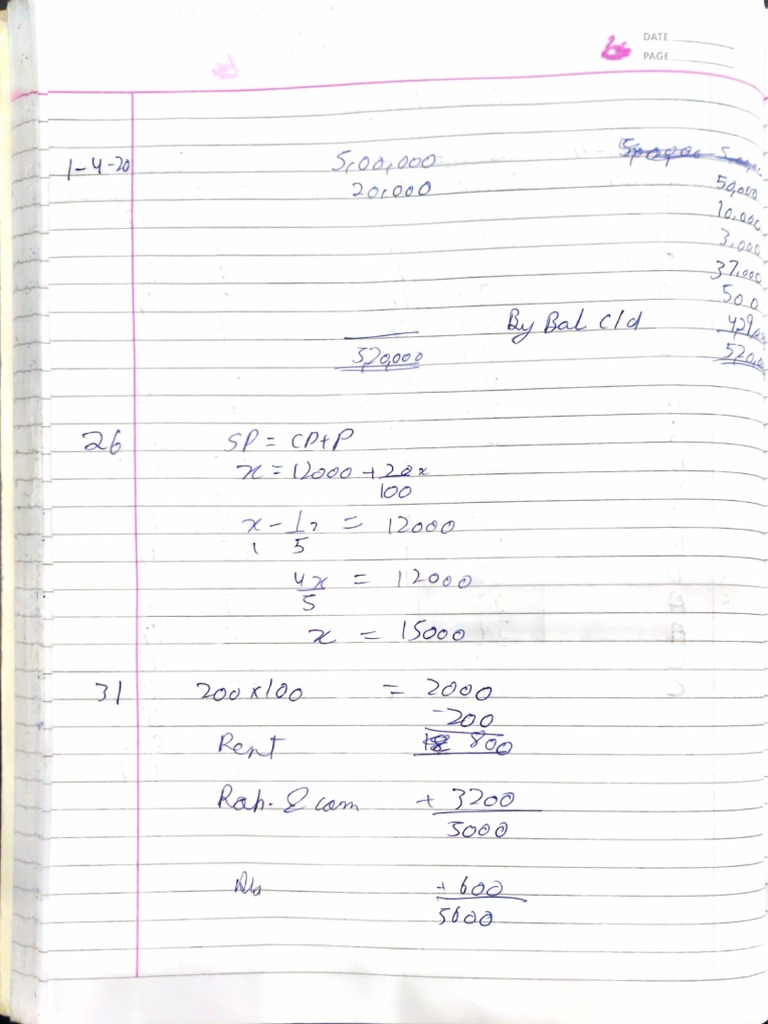 DATE
PAGE
1-4-20 5,00,000
20,000 50,000
10,000
3,000
37,000
500
By Bal C/d
520,000
26 SP = CP+P
x = 12000 + 20x
100
x - 1 = 12000
1 5
4x = 12000
5
x = 15000
31 200 x 100 = 2000
-200
Rent 800
Rah. & com + 3200
5000
+ 600
5600